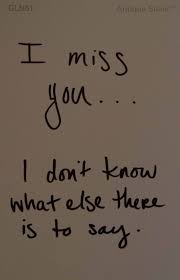 GLN61
Antique Silver™
I miss
you...
I don't know
what else there
is to say.